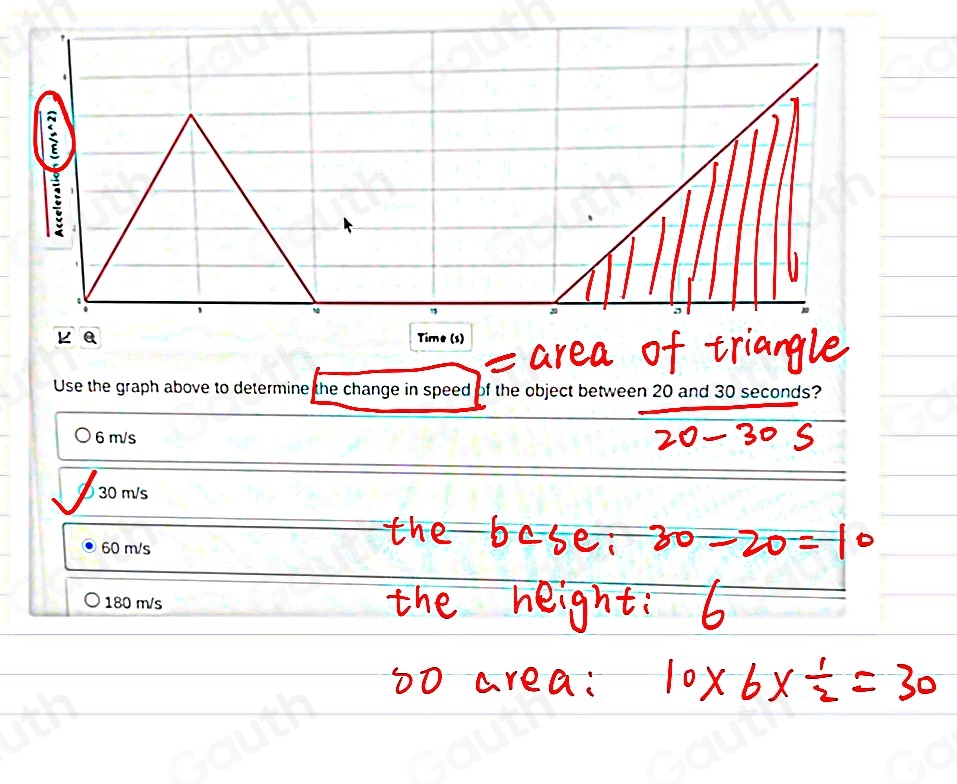 Acceleration (m/s^2)
0 5 10 15 20 25 30
Time (s)
= area of triangle
Use the graph above to determine the change in speed of the object between 20 and 30 seconds?
20-30 S
6 m/s
30 m/s
the base: 30-20=10
60 m/s
the height: 6
180 m/s
so area: 10×6×1/2=30
Gauth